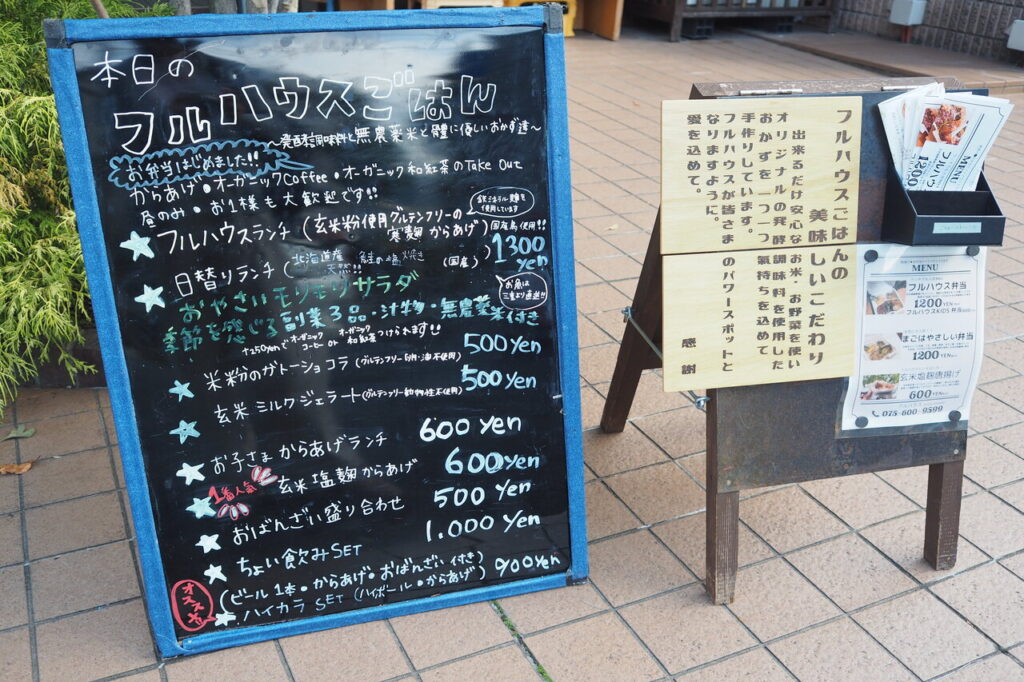 本日の
フルハウスごはん
〜発酵調味料と無農薬米と体に優しいおかず達〜
お弁当はじめました!!
からあげ・オーガニックCoffee・オーガニック和紅茶のTake Out
昼のみ・お1様も大歓迎です!!
フルハウスランチ (玄米粉使用グルテンフリーの
寒麹からあげ)
国産鳥使用!!
1300
yen
日替りランチ (北海道産
天然!! 鮭の塩焼き
(国産)
お魚は
三重より直送!!
おやさいモリモリサラダ
季節を感じる副菜3品・汁物・無農薬米付き
+250yenでオーガニック
コーヒー or オーガニック
和紅茶 つけられます!!
米粉のガトーショコラ (グルテンフリー 卵・油不使用)
500 yen
玄米ミルクジェラート (グルテンフリー 動物性不使用)
500 yen
お子さまからあげランチ
600 yen
1番人気
玄米塩麹からあげ
600 yen
おばんざい盛り合わせ
500 yen
ちょい飲みSET
1.000 yen
(ビール1本・からあげ・おばんざい付き)
オススメ
ハイカラSET (ハイボール・からあげ)
900 yen
フルハウスごはんの
美味しいこだわり
出来るだけ安心なお米・お野菜を使い
オリジナルの発酵調味料を使用した
おかずを一つ一つ気持ちを込めて
手作りしています。
フルハウスが皆さまのパワースポットと
なりますように。
愛を込めて。
感謝
MENU
フルハウス弁当
1200YEN
フルハウスKIDS弁当
まごはやさしい弁当
1200YEN
玄米塩麹唐揚げ
600YEN
075-600-9599
MENU
フルハウ
1200